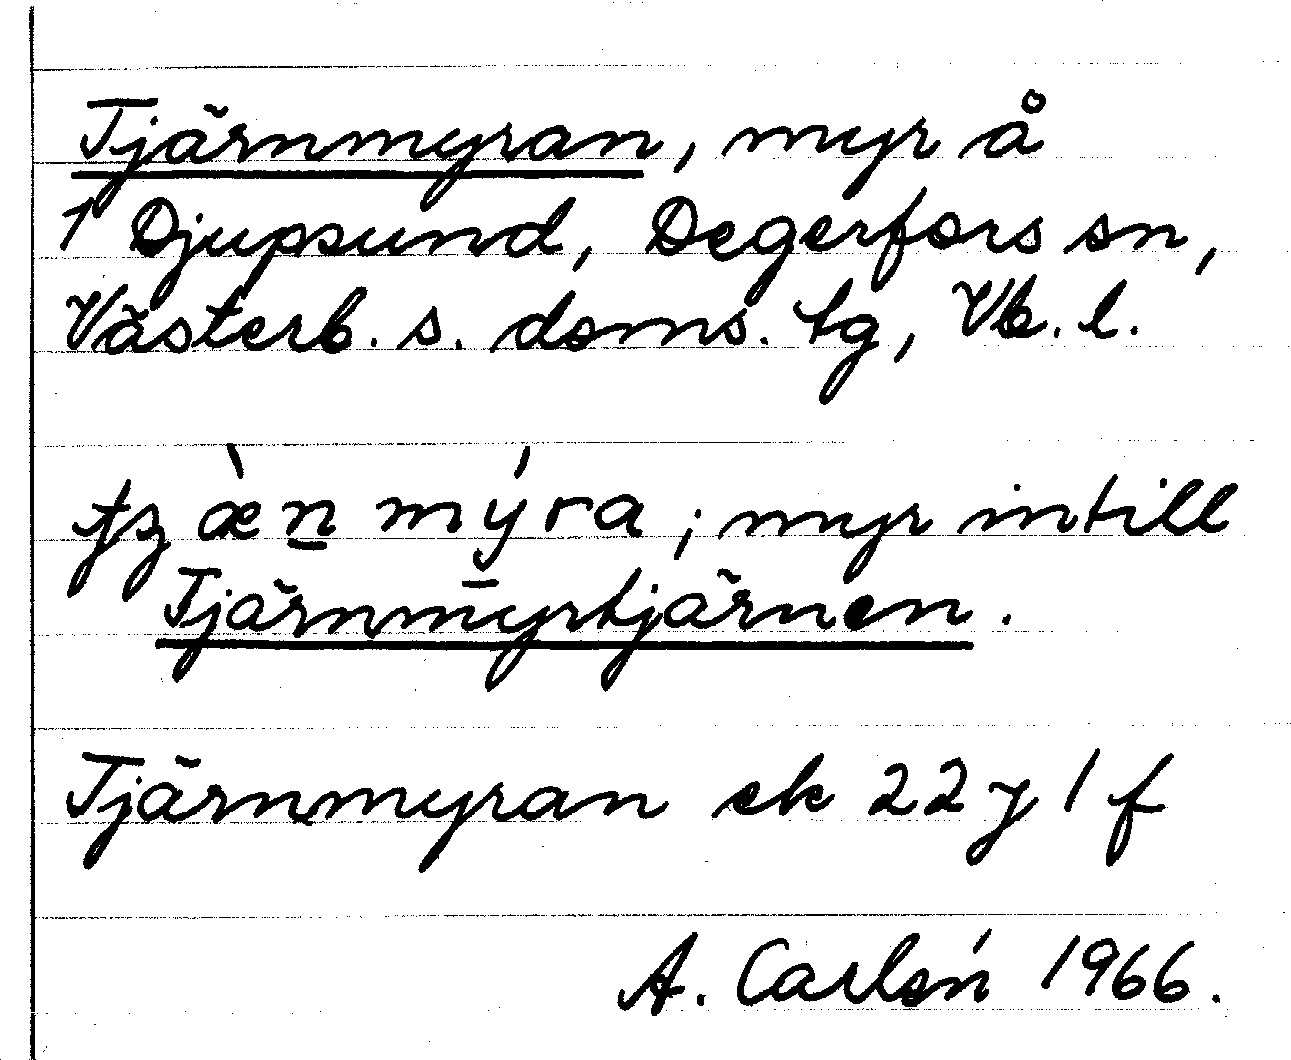 Tjärnmyran, myr å
1 Djupsund, Degerfors sn,
Västerb. s. doms. tg, Vb. l.
tʃʒæ̀n̲mýra; myr intill
Tjärnmyrtjärnen.
Tjärnmyran ek 22 y 1 f
A. Carlén 1966.